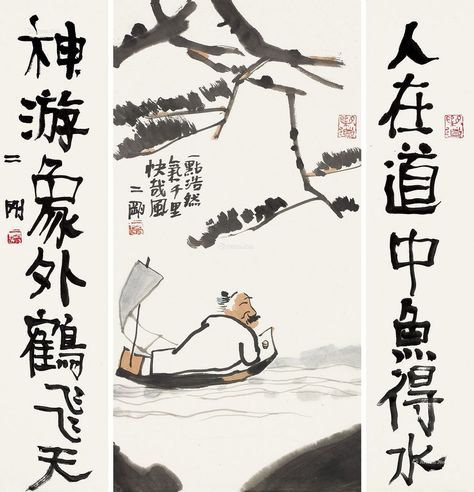 人在道中魚得水
神游象外鶴飛天
二剛
一點浩然
氣千里
快哉風
二剛